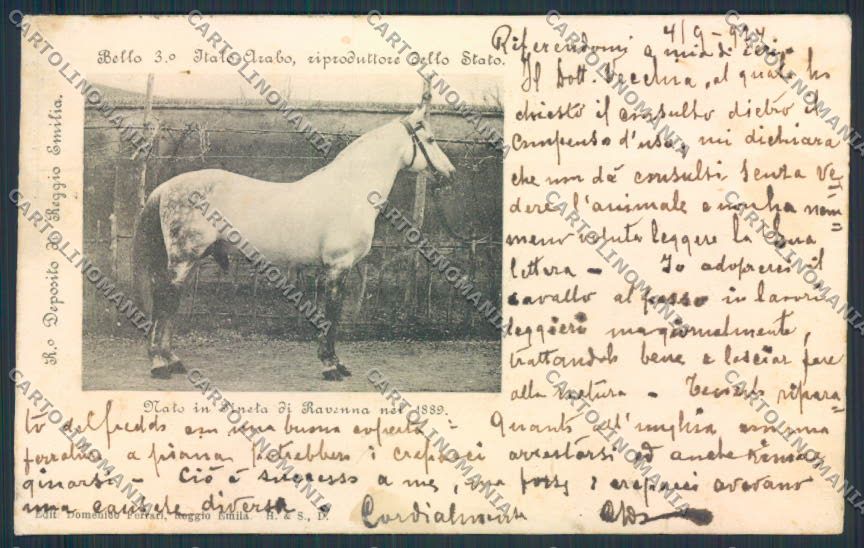 Bello 3.º Italo Arabo, riproduttore dello Stato.
R.º Deposito di Reggio Emilia.
Nato in Pineta di Ravenna nel 1889.
4/9-
Riferendomi a mia di ieri.
Il Dott. Vecchia, al quale ho
chiesto il consulto dietro il
compenso d'uso, mi dichiara
che non dà consulti senza ve
dere l'animale e non ha nem=
meno voluto leggere la
lettera - Io adoprerei il
cavallo al passo in lavori
leggieri ma giornalmente,
trattandolo bene e lasciar fare
alla natura - Tenerlo ripara-
to dal freddo con una buona coperta - Quanto all'unghia con una
ferratura a piana potrebbero i crepacci arrestarsi ed anche rimar
ginarsi - Ciò è successo a me, ma forse i crepacci avevano
una causa diversa.
Cordialmente
Edit. Domenico Ferrari, Reggio Emilia. H. & S., D.
CARTOLINOMANIA